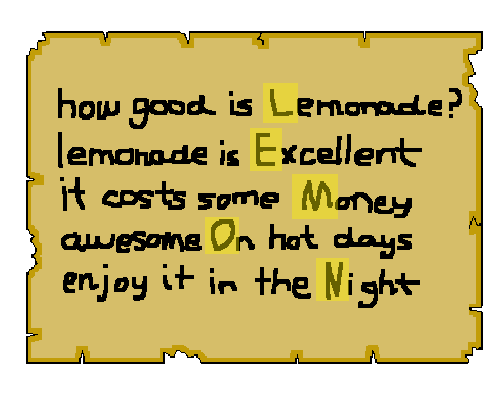 how good is Lemonade?
lemonade is Excellent
it costs some Money
awesome On hot days
enjoy it in the Night